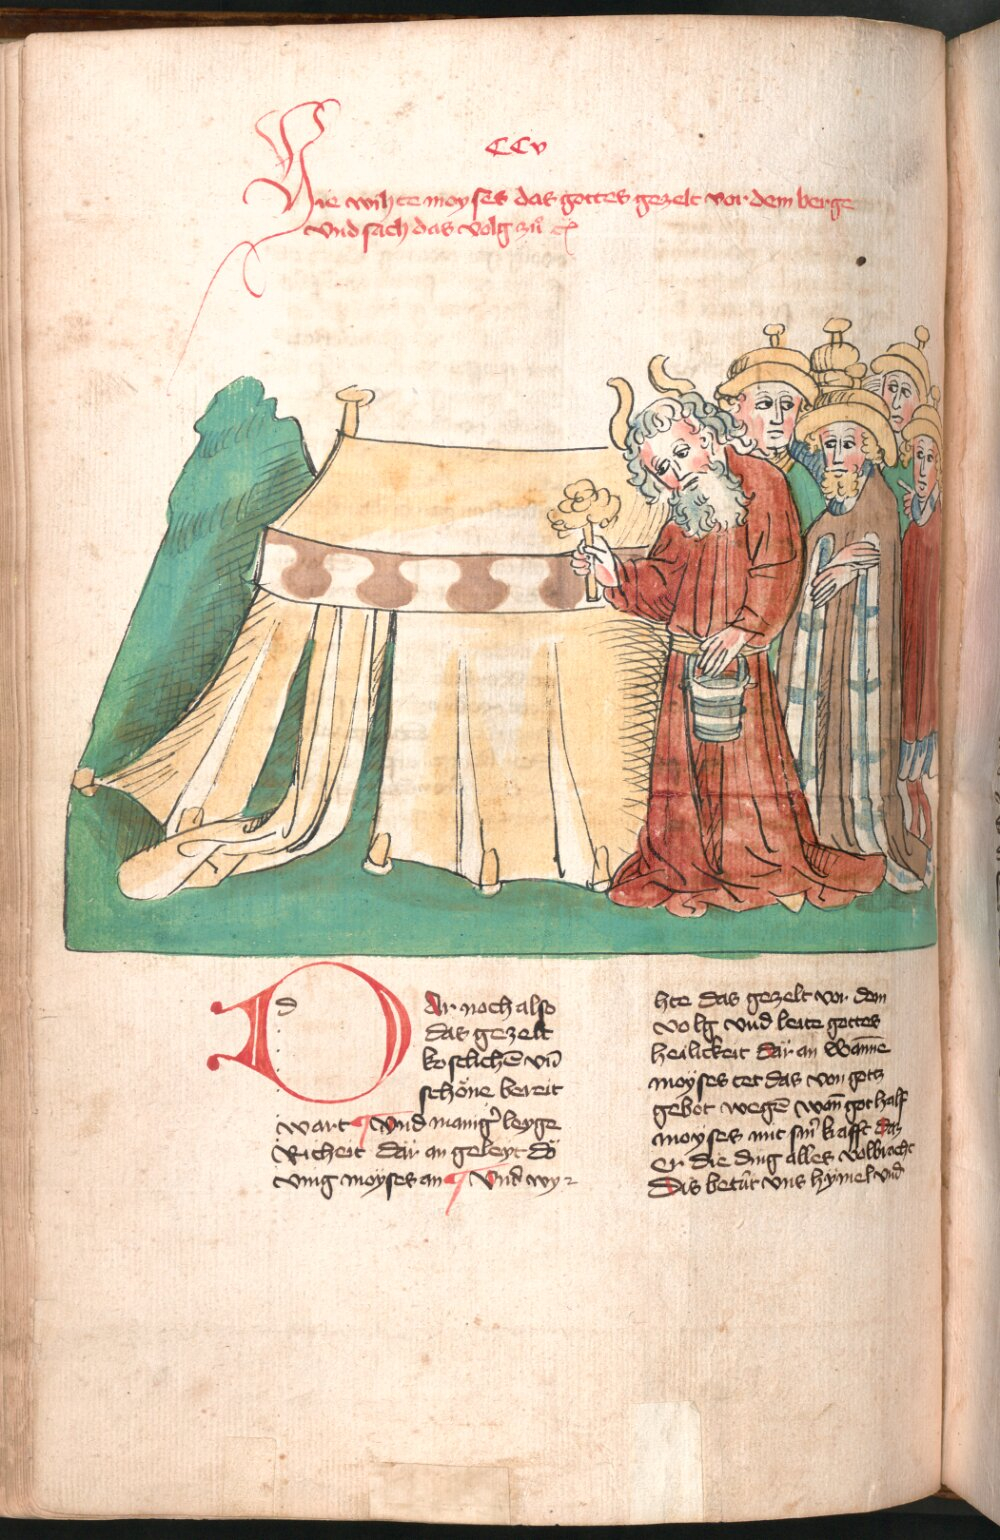 CCv
Hie wihte moyses das gottes gezelt vor dem berge
vnd sach das volg zuͦ ec̄
Dar noch also
das gezelt
kostlichē vn̄
schöne bereit
wart Vnd manigˀ leyge
Richeit dar an geleyt do
ving moÿses an Vnd wy⸗
hte das gezelt vor dem
volg vnd leite gottes
heilickeit dar an Wanne
moÿses tet das von gotz
gebot wegē wan̄ got half
moÿses mit sinˀ krafft daz
Er die ding alles volbracht
Dis betút vns hÿmel vnd